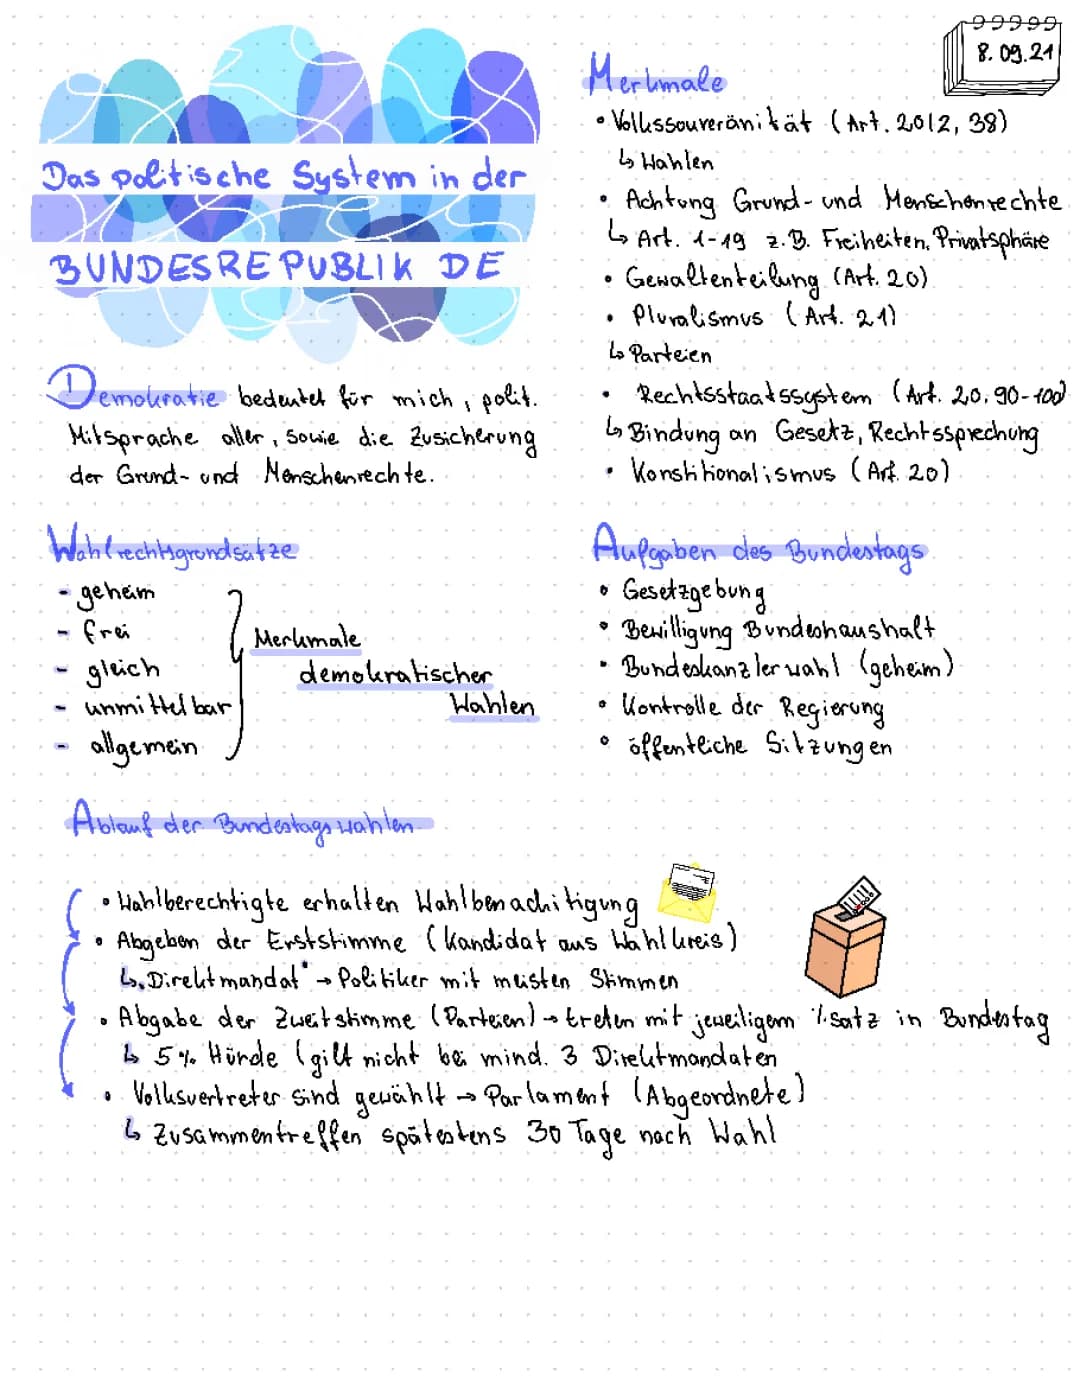 Das politische System in der
BUNDESREPUBLIK DE
8.09.21
Merkmale
• Volkssouveränität (Art. 20|2, 38)
↳ Wahlen
• Achtung Grund- und Menschenrechte
↳ Art. 1-19 z.B. Freiheiten, Privatsphäre
• Gewaltenteilung (Art. 20)
• Pluralismus (Art. 21)
↳ Parteien
• Rechtsstaatssystem (Art. 20, 90-100)
↳ Bindung an Gesetz, Rechtssprechung
• Konstitionalismus (Art. 20)
Demokratie bedeutet für mich, polit.
Mitsprache aller, sowie die Zusicherung
der Grund- und Menschenrechte.
Wahlrechtsgrundsätze
- geheim
- frei
- gleich
- unmittelbar
- allgemein
Merkmale
demokratischer
Wahlen
Aufgaben des Bundestags
• Gesetzgebung
• Bewilligung Bundeshaushalt
• Bundeskanzlerwahl (geheim)
• Kontrolle der Regierung
• öffentliche Sitzungen
Ablauf der Bundestagswahlen
• Wahlberechtigte erhalten Wahlbenachitigung
• Abgeben der Erststimme (Kandidat aus Wahlkreis)
↳ „Direktmandat" → Politiker mit meisten Stimmen
• Abgabe der Zweitstimme (Parteien) → treten mit jeweiligem %satz in Bundestag
↳ 5% Hürde (gilt nicht bei mind. 3 Direktmandaten
• Volksvertreter sind gewählt → Parlament (Abgeordnete)
↳ Zusammentreffen spätestens 30 Tage nach Wahl